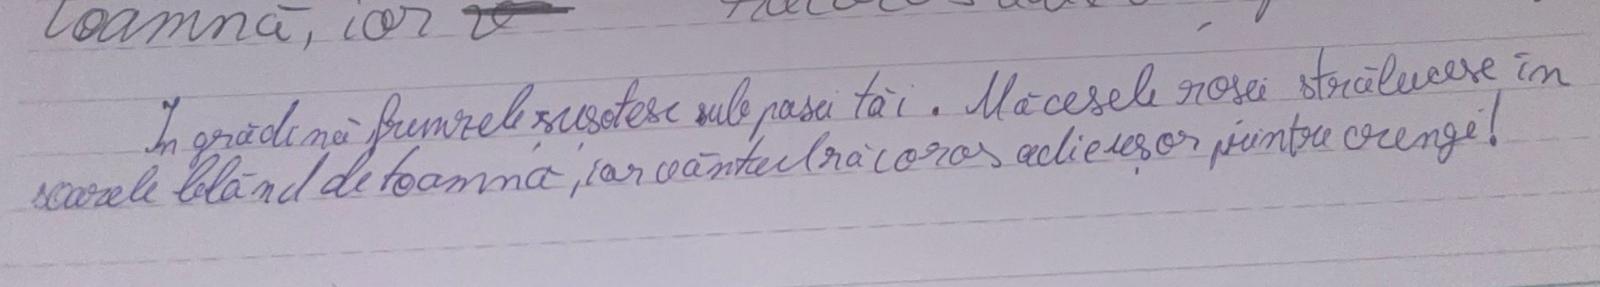 toamnă, iar
În grădină frunzele șușotesc sub pașii tăi. Măceșele roșii strălucesc în
soarele blând de toamnă, iar vântul răcoros adie ușor printre crengi!